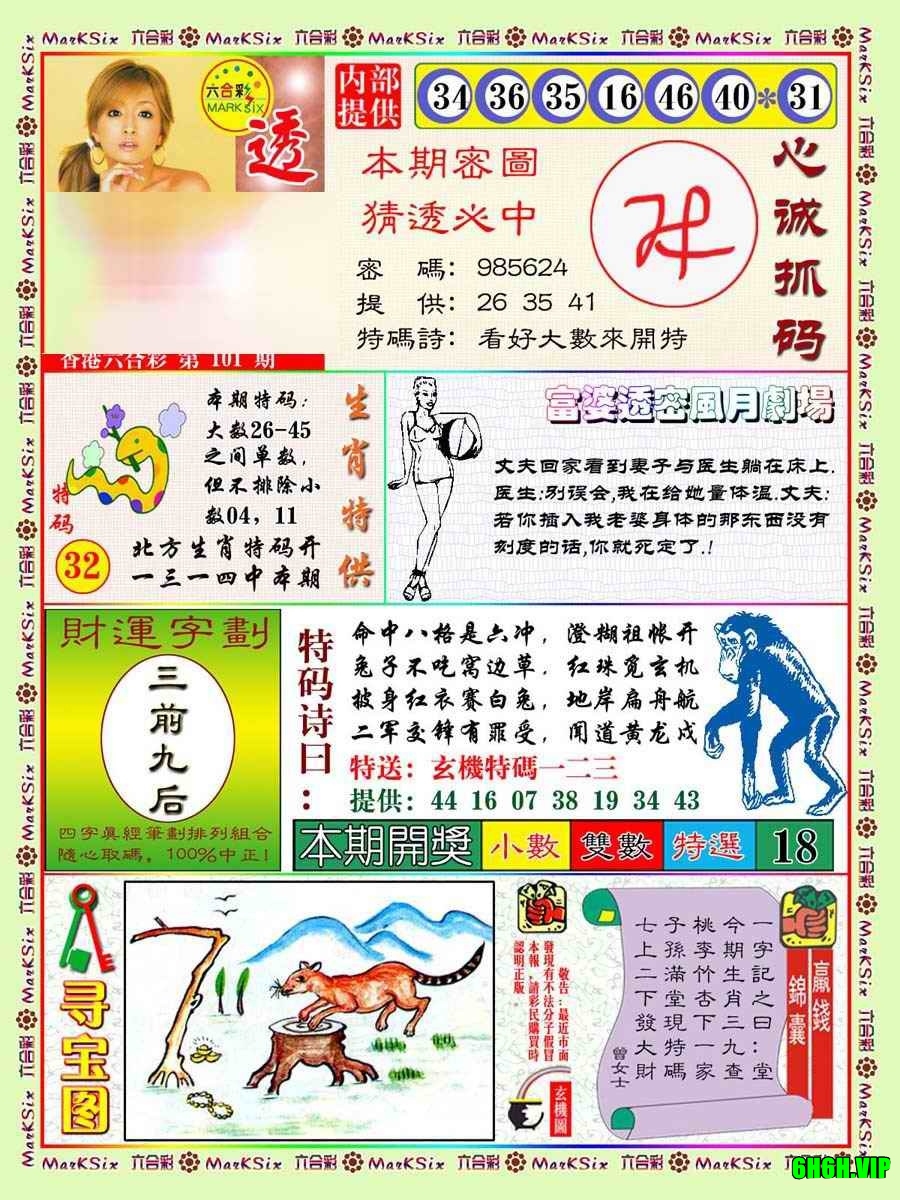 MarKSix 六合彩 MarKSix 六合彩 MarKSix 六合彩 MarKSix 六合彩 MarKSix 六合彩
六合彩
MARK SIX
透
内部
提供
34 36 35 16 46 40 * 31
本期密圖
猜透必中
密 碼: 985624
提 供: 26 35 41
特碼詩: 看好大數來開特
心诚抓码
香港六合彩 第 101 期
特码
32
本期特码:
大数26-45
之间单数,
但不排除小
数04, 11
北方生肖特码开
一三一四中本期
生肖特供
富婆透密風月劇場
丈夫回家看到妻子与医生躺在床上.
医生:别误会,我在给她量体温.丈夫:
若你插入我老婆身体的那东西没有
刻度的话,你就死定了.!
財運字劃
三前九后
四字真經筆劃排列組合
隨心取碼, 100%中正!
特码诗曰:
命中八格是六冲, 澄糊祖帐开
兔子不吃窝边草, 红珠觅玄机
披身红衣赛白兔, 地岸扁舟航
二军交锋有罪受, 闻道黄龙戍
特送: 玄機特碼一二三
提供: 44 16 07 38 19 34 43
本期開獎 小數 雙數 特選 18
寻宝图
敬告:最近市面
發現有不法分子假冒
本報,請彩民購買時
認明正版。
玄機圖
一字記之曰:堂
今期生肖三九查
桃李竹杏下一家
子孫滿堂現特碼
七上二下發大財
曾女士
贏錢
錦囊
MarKSix 六合彩 MarKSix 六合彩 MarKSix 六合彩 MarKSix 六合彩 MarKSix 六合彩
6H6H.VIP